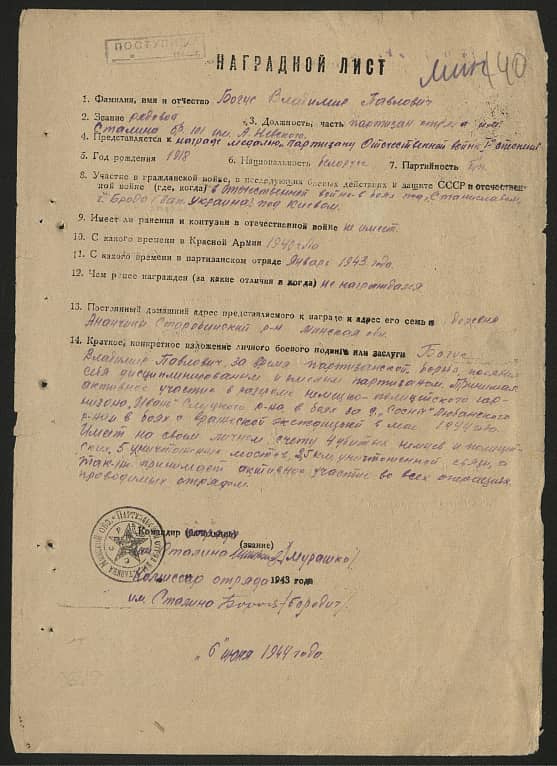 ПОСТУПИЛ
НАГРАДНОЙ ЛИСТ
140
1. Фамилия, имя и отчество Богус Владимир Павлович
2. Звание рядовой 3. Должность, часть партизан отряда им.
Сталина бр. 101 им. А. Невского.
4. Представляется к награде медалью „партизану Отечественной войны" степени
5. Год рождения 1918 6. Национальность белорус 7. Партийность б/п.
8. Участие в гражданской войне, в последующих боевых действиях и защите СССР в отечествен-
ной войне (где, когда) в Отечественной войне в боях под г. Станиславом,
г. Броды (зап. Украина) под Киевом.
9. Имеет ли ранения и контузии в отечественной войне не имеет.
10. С какого времени в Красной Армии
11. С какого времени в партизанском отряде Январь 1943 года.
12. Чем ранее награжден (за какие отличия и когда) не награждался
13. Постоянный домашний адрес представляемого к награде и адрес его семьи деревня
Старобинский р-н Минская обл.
14. Краткое, конкретное изложение личного боевого подвига или заслуги Богус
Владимир Павлович, за время партизанской борьбы, показал
себя дисциплинированным и смелым партизаном. Принимал
активное участие в разгроме немецко-полицейского гар-
низона „Иван" Слуцкого р-на, в боях за д. „Сосны" Любанского
р-на и в боях с вражеской экспедицией в мае 1944 года.
Имеет на своем личном счету 4 убитых немцев и полицей-
ских, 5 уничтоженных мостов, 2,5 км уничтоженной связи, а
также принимает активное участие во всех операциях
проводимых отрядом.
Командир
(звание)
Сталина /Мурашко/
Комиссар отряда 1943 года
им. Сталина /Бородич/
„6" июня 1944 года